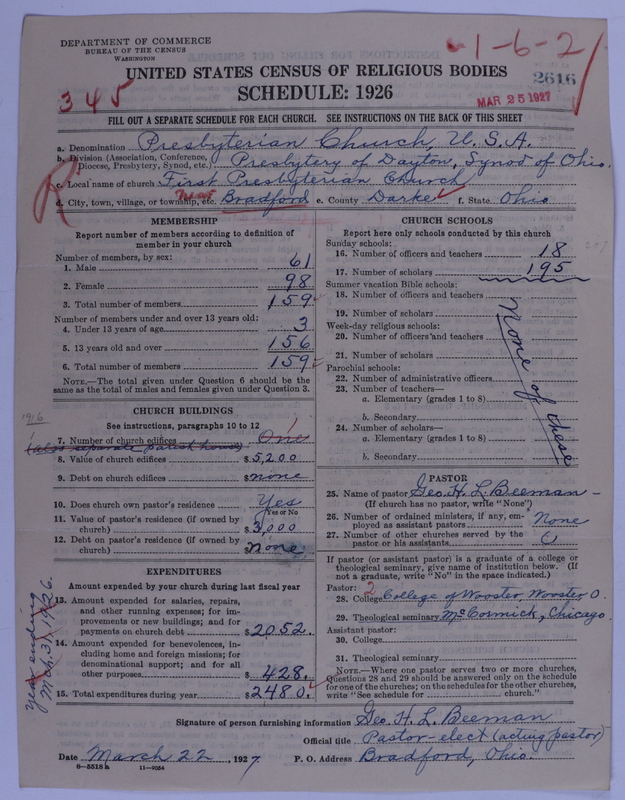 DEPARTMENT OF COMMERCE
BUREAU OF THE CENSUS
WASHINGTON
1-6-2
UNITED STATES CENSUS OF RELIGIOUS BODIES
SCHEDULE: 1926
2616
345
MAR 25 1927
FILL OUT A SEPARATE SCHEDULE FOR EACH CHURCH. SEE INSTRUCTIONS ON THE BACK OF THIS SHEET
a. Denomination Presbyterian Church, U.S.A.
b. Division (Association, Conference, Diocese, Presbytery, Synod, etc.) Presbytery of Dayton, Synod of Ohio.
c. Local name of church First Presbyterian Church
R
d. City, town, village, or township, etc. near Bradford e. County Darke f. State Ohio
MEMBERSHIP
Report number of members according to definition of member in your church
Number of members, by sex:
1. Male 61
2. Female 98
3. Total number of members 159
Number of members under and over 13 years old:
4. Under 13 years of age 3
5. 13 years old and over 156
6. Total number of members 159
NOTE.—The total given under Question 6 should be the same as the total of males and females given under Question 3.
CHURCH BUILDINGS
1916
See instructions, paragraphs 10 to 12
7. Number of church edifices One 1
(also separate parish house)
8. Value of church edifices $5,200
9. Debt on church edifices $none
10. Does church own pastor's residence Yes
Yes or No
11. Value of pastor's residence (if owned by church) $3,000
12. Debt on pastor's residence (if owned by church) $none
EXPENDITURES
Amount expended by your church during last fiscal year
year ending Mch. 31, 1926.
13. Amount expended for salaries, repairs, and other running expenses; for improvements or new buildings; and for payments on church debt $2052.
14. Amount expended for benevolences, including home and foreign missions; for denominational support; and for all other purposes $428.
15. Total expenditures during year $2480.
CHURCH SCHOOLS
Report here only schools conducted by this church
Sunday schools:
16. Number of officers and teachers 18
17. Number of scholars 195
Summer vacation Bible schools:
18. Number of officers and teachers
19. Number of scholars
Week-day religious schools:
20. Number of officers and teachers
21. Number of scholars
Parochial schools:
22. Number of administrative officers
23. Number of teachers—
a. Elementary (grades 1 to 8)
b. Secondary
24. Number of scholars—
a. Elementary (grades 1 to 8)
b. Secondary
None of these
PASTOR
25. Name of pastor Geo. H. L. Beeman
(If church has no pastor, write "None")
26. Number of ordained ministers, if any, employed as assistant pastors None
27. Number of other churches served by the pastor or his assistants 0
If pastor (or assistant pastor) is a graduate of a college or theological seminary, give name of institution below. (If not a graduate, write "No" in the space indicated.)
Pastor: 2
28. College College of Wooster, Wooster O.
29. Theological seminary McCormick, Chicago
Assistant pastor:
30. College
31. Theological seminary
NOTE.—Where one pastor serves two or more churches, Questions 28 and 29 should be answered only on the schedule for one of the churches; on the schedules for the other churches, write "See schedule for church."
Signature of person furnishing information Geo. H. L. Beeman
Official title Pastor-elect (acting pastor)
Date March 22, 1927 P. O. Address Bradford, Ohio.
8—5518a 11—9034